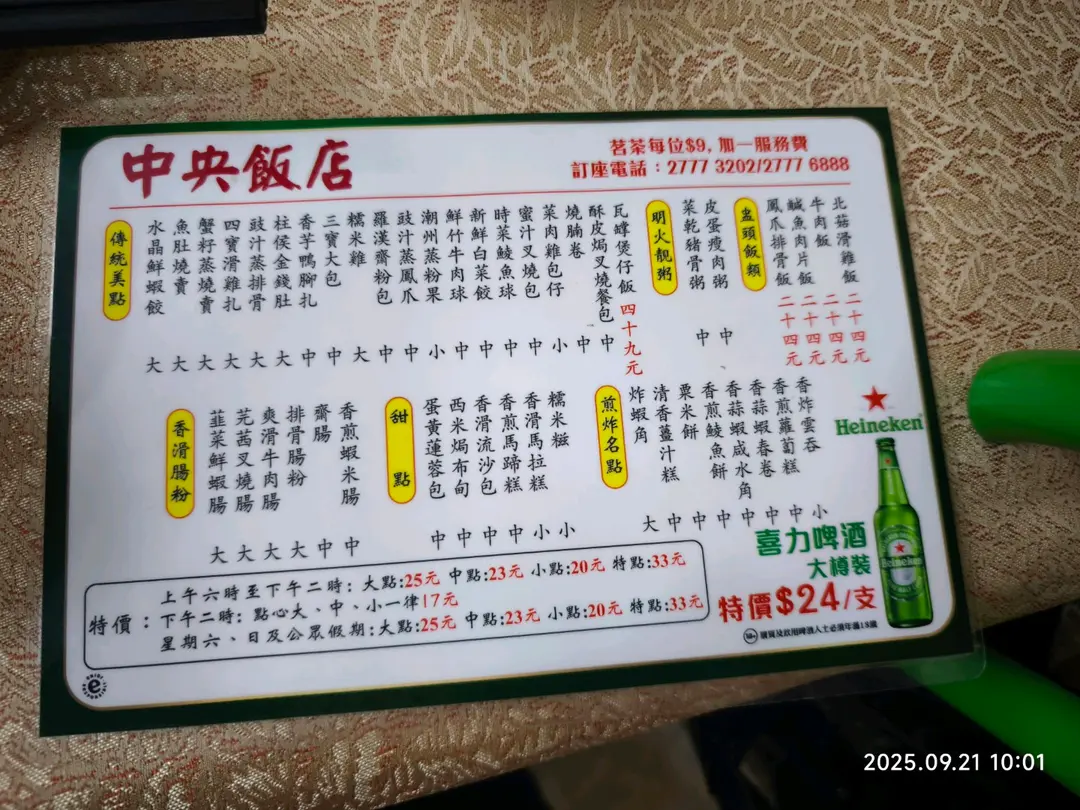 中央飯店
茗茶每位$9, 加一服務費
訂座電話：2777 3202/2777 6888
傳統美點
水晶鮮蝦餃 大
魚肚燒賣 大
蟹籽蒸燒賣 大
四寶滑雞扎 大
豉汁蒸排骨 大
柱侯金錢肚 大
香芋鴨腳扎 中
三寶大包 中
糯米雞 大
羅漢齋粉包 中
豉汁蒸鳳爪 中
潮州蒸粉果 小
鮮竹牛肉球 中
新鮮白菜餃 中
時菜鯪魚球 中
蜜汁叉燒包 中
菜肉雞包仔 小
燒腩卷 中
酥皮焗叉燒餐包 中
瓦罉煲仔飯 四十九元
明火靚粥
菜乾豬骨粥 中
皮蛋瘦肉粥 中
盅頭飯類
鳳爪排骨飯 二十四元
鹹魚肉片飯 二十四元
牛肉飯 二十四元
北菇滑雞飯 二十四元
香滑腸粉
韮菜鮮蝦腸 大
芫茜叉燒腸 大
爽滑牛肉腸 大
排骨腸粉 大
齋腸 中
香煎蝦米腸 中
甜點
蛋黃蓮蓉包 中
西米焗布甸 中
香滑流沙包 中
香煎馬蹄糕 中
香滑馬拉糕 小
糯米糍 小
煎炸名點
炸蝦角 大
清香薑汁糕 中
粟米餅 中
香煎鯪魚餅 中
香蒜蝦咸水角 中
香蒜蝦春卷 中
香煎蘿蔔糕 中
香炸雲吞 小
Heineken
喜力啤酒
大樽裝
特價$24/支
18+ 購買及飲用啤酒人士必須年滿18歲
特價：
上午六時至下午二時：大點:25元 中點:23元 小點:20元 特點:33元
下午二時：點心大、中、小一律17元
星期六、日及公眾假期:大點:25元 中點:23元 小點:20元 特點:33元
2025.09.21 10:01